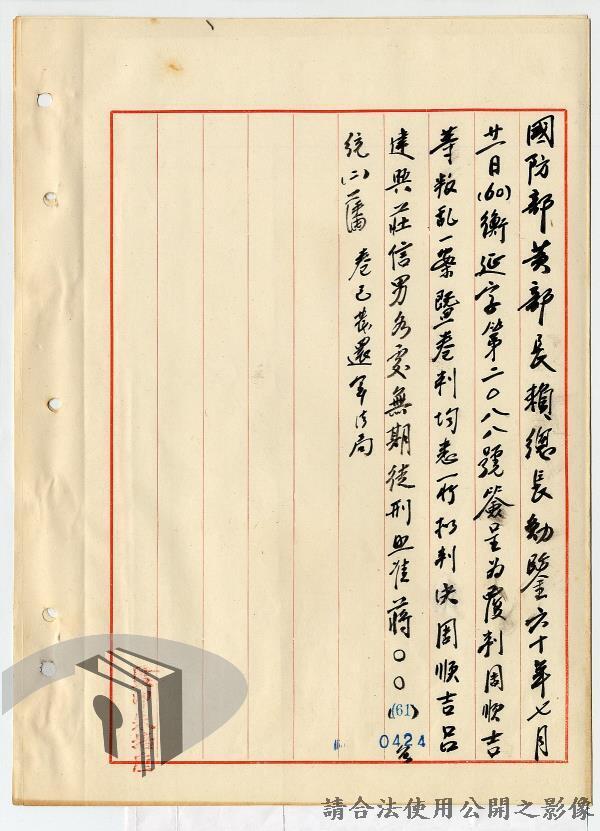 國防部黃部長賴總長勳鑒六十年七月
廿一日(60)衡延字第二〇八八號簽呈為覆判周順吉
等叛乱一案暨卷判均悉一所拟判决周順吉呂
建興莊信男各處無期徒刑照准蔣〇〇(61)
統(二)藩 卷已發還軍法局
0424
請合法使用公開之影像